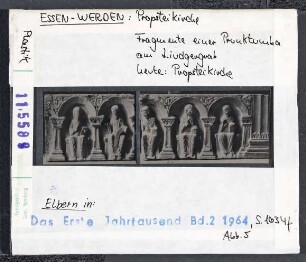 ESSEN-WERDEN: Propsteikirche
Fragmente einer Prunktumba
am Liudgergrab
heute: Propsteikirche
Plastik
115589
Elbern in:
Das Erste Jahrtausend Bd.2 1964, S.1034f
Abb.5